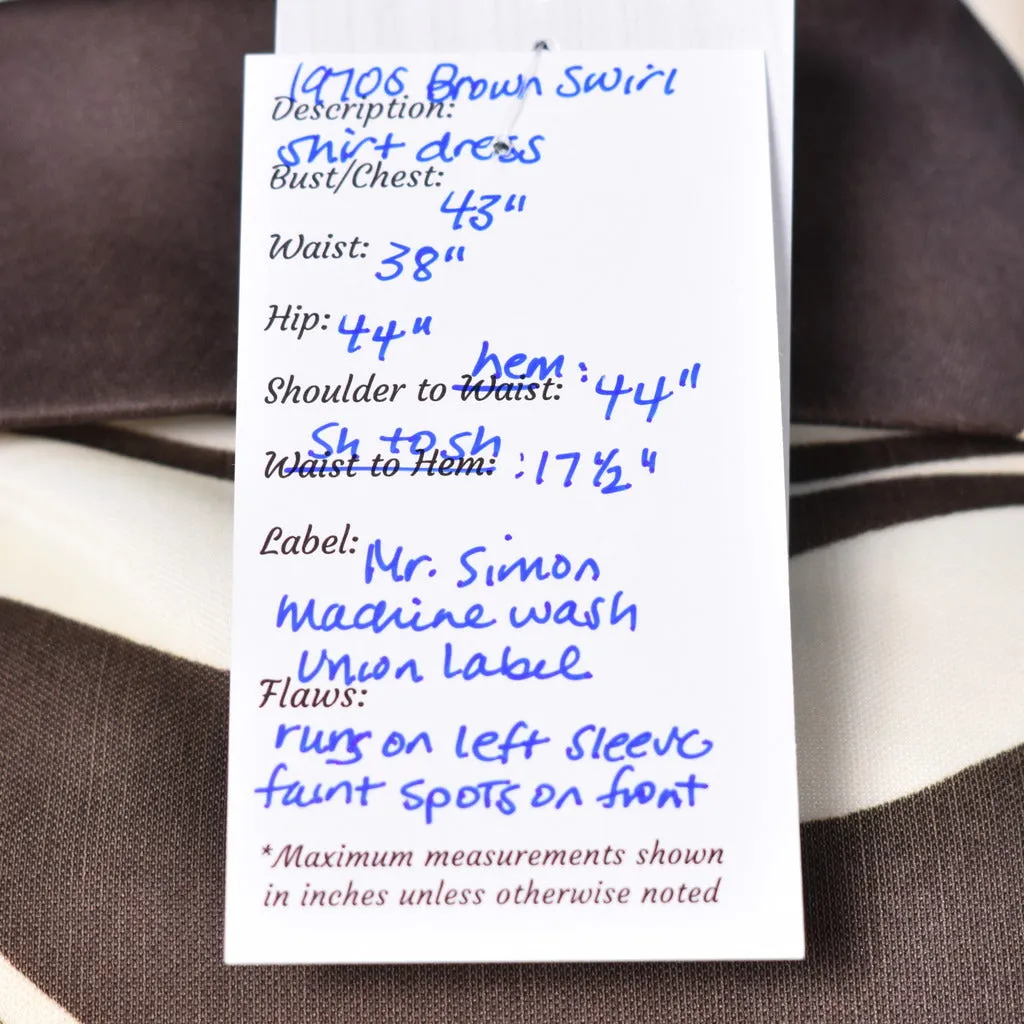 1970s Brown Swirl
Description:
shirt dress
Bust/Chest:
43"
Waist: 38"
Hip: 44"
hem :
Shoulder to Waist: 44"
sh to sh
Waist to Hem: :17 ½"
Label:
Mr. Simon
machine wash
Union Label
Flaws:
runs on left sleeve
faint spots on front
*Maximum measurements shown
in inches unless otherwise noted